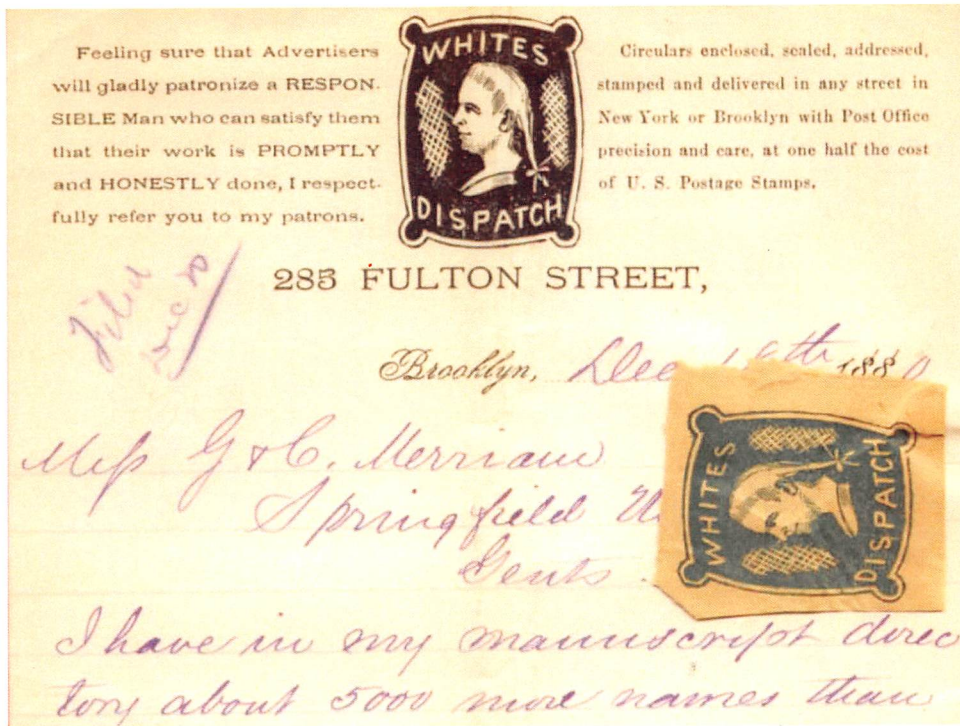 Feeling sure that Advertisers
will gladly patronize a RESPON-
SIBLE Man who can satisfy them
that their work is PROMPTLY
and HONESTLY done, I respect-
fully refer you to my patrons.
WHITES
DISPATCH
Circulars enclosed, sealed, addressed,
stamped and delivered in any street in
New York or Brooklyn with Post Office
precision and care, at one half the cost
of U. S. Postage Stamps.
285 FULTON STREET,
Filed
Brooklyn, Dec 188
Mess G & C. Merriam
Springfield
Gents
WHITES
DISPATCH
I have in my manuscript direc
tory about 5000 more names than